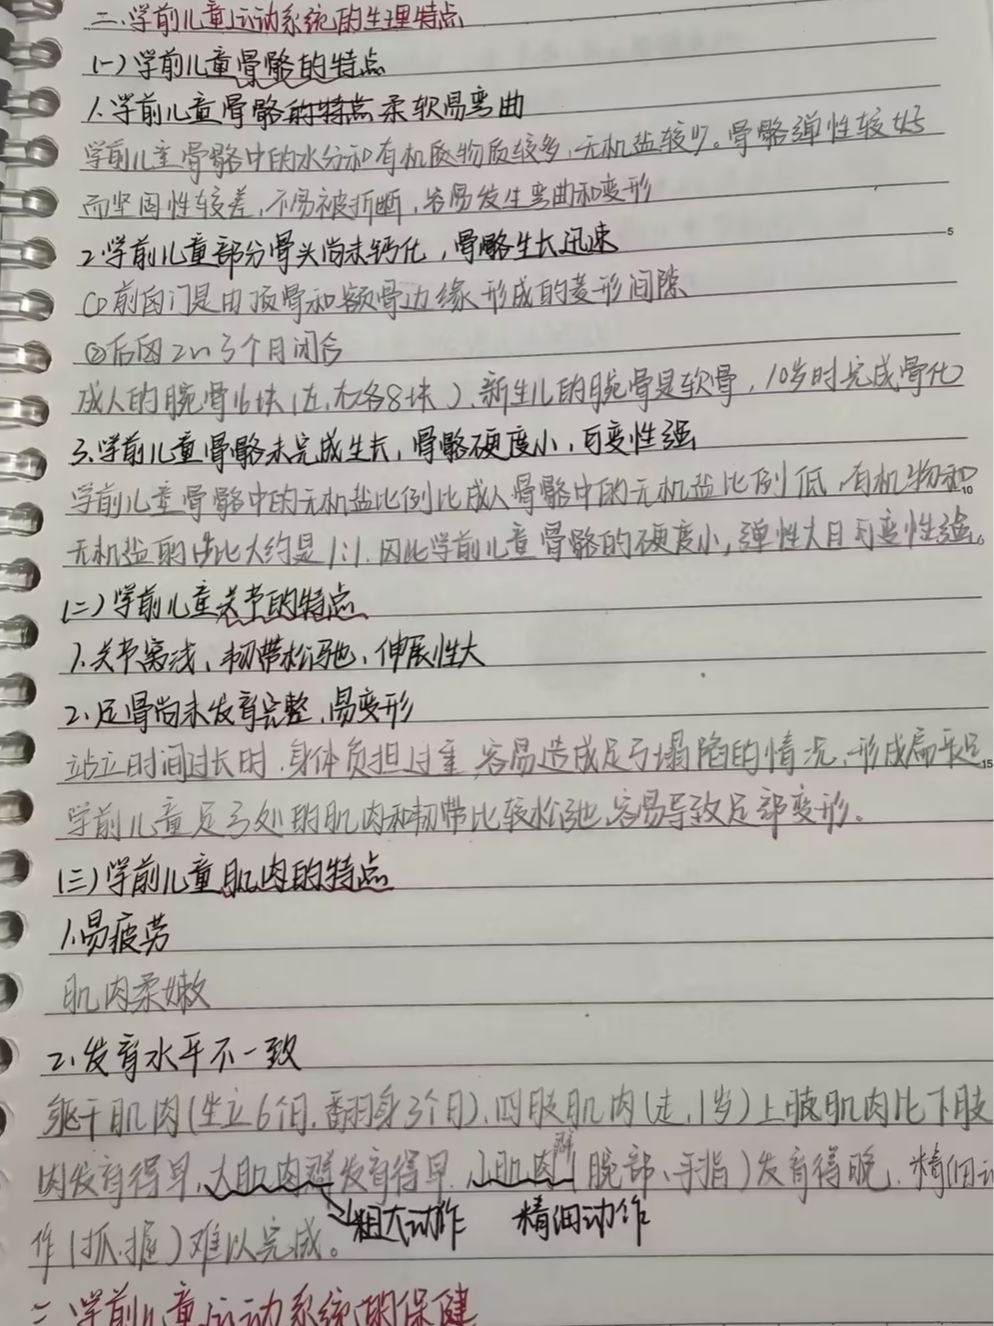 二、学前儿童运动系统的生理特点
(一)学前儿童骨骼的特点
1.学前儿童骨骼的特点柔软易弯曲
学前儿童骨骼中的水分和有机质物质较多,无机盐较少。骨骼弹性较好
而坚固性较差,不易被折断,容易发生弯曲和变形
2.学前儿童部分骨头尚未钙化,骨骼生长迅速
①前囟门是由顶骨和额骨边缘形成的菱形间隙
②后囟2~3个月闭合
5
成人的腕骨16块(左、右各8块)、新生儿的腕骨是软骨,10岁时完成骨化
3.学前儿童骨骼未完成生长,骨骼硬度小,可变性强
学前儿童骨骼中的无机盐比例比成人骨骼中的无机盐比例低,有机物和
10
无机盐的占比大约是1:1.因此学前儿童骨骼的硬度小,弹性大且可变性强。
(二)学前儿童关节的特点
1.关节窝浅、韧带松弛、伸展性大
2.足骨尚未发育完整,易变形
站立时间过长时,身体负担过重,容易造成足弓塌陷的情况,形成扁平足
15
学前儿童足弓处的肌肉和韧带比较松弛,容易导致足部变形。
(三)学前儿童肌肉的特点
1.易疲劳
肌肉柔嫩
2.发育水平不一致
躯干肌肉(坐立6个月,翻身3个月)、四肢肌肉(走,1岁)上肢肌肉比下肢
肉发育得早,大肌肉群发育得早,小肌肉群(腕部、手指)发育得晚,精细动
作(抓.握)难以完成。
粗大动作 精细动作
二、学前儿童运动系统的保健